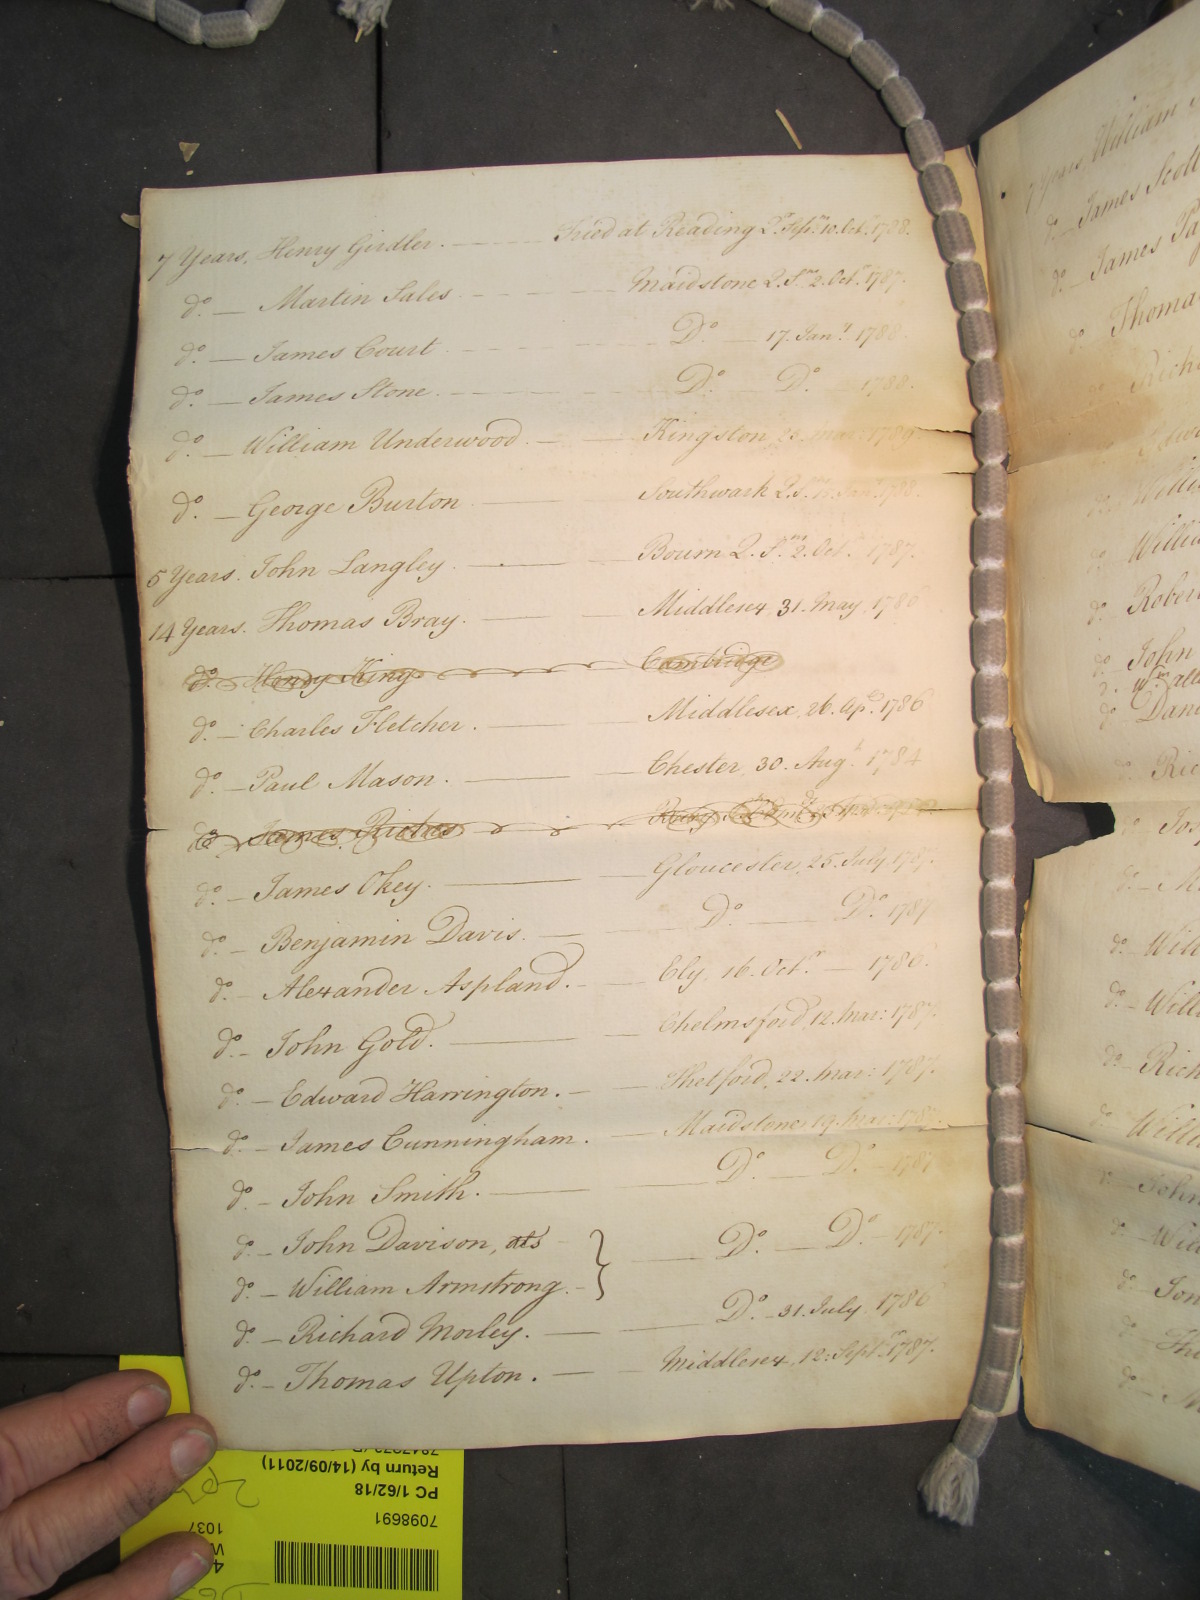 7 Years. Henry Girdler. Tried at Reading Qr. Sesn. 10. Octr. 1788.
do. — Martin Sales Maidstone Q. Sn. 2. Octr. 1787.
do. — James Court Do. 17. Jany. 1788
do. — James Stone Do. Do. 1788.
do. — William Underwood Kingston
do. — George Burton Southwark
5 Years. John Langley Bourn Q. Sns. 2. Octr. 1787.
14 Years. Thomas Bray. Middlesex, 31. May. 1786
do. Henry King Cambridge
do. — Charles Fletcher Middlesex, 26. Apl. 1786
do. — Paul Mason. Chester, 30. Augt. 1784
do. James Riches
do. — James Okey. Gloucester, 25. July. 1787.
do. — Benjamin Davis. Do. — Do. 1787
do. — Alexander Aspland. Ely, 16. Octr. — 1786.
do. — John Gold. Chelmsford, 12. Mar: 1787.
do. — Edward Harrington. Thetford, 22. Mar: 1787.
do. — James Cunningham. Maidstone, 19. Mar: 1787.
do. — John Smith. Do. Do. — 1787
do. — John Davison, als
do. — William Armstrong. Do. — Do. — 1787.
do. — Richard Morley. Do. 31. July. 1786
do. — Thomas Upton. Middlesex, 12. Septr. 1787.
7 Years, William
do. — James Scott
do. James
do. Thoma
Rich
Willi
do. Willia
do. Rober
John
do. Dani
Ric
do. Will
do. — Willi
do. — Rich
Willi
John
do. — Wil
do. — Jon
Return by (14/09/2011)
PC 1/62/18
7098691
1037